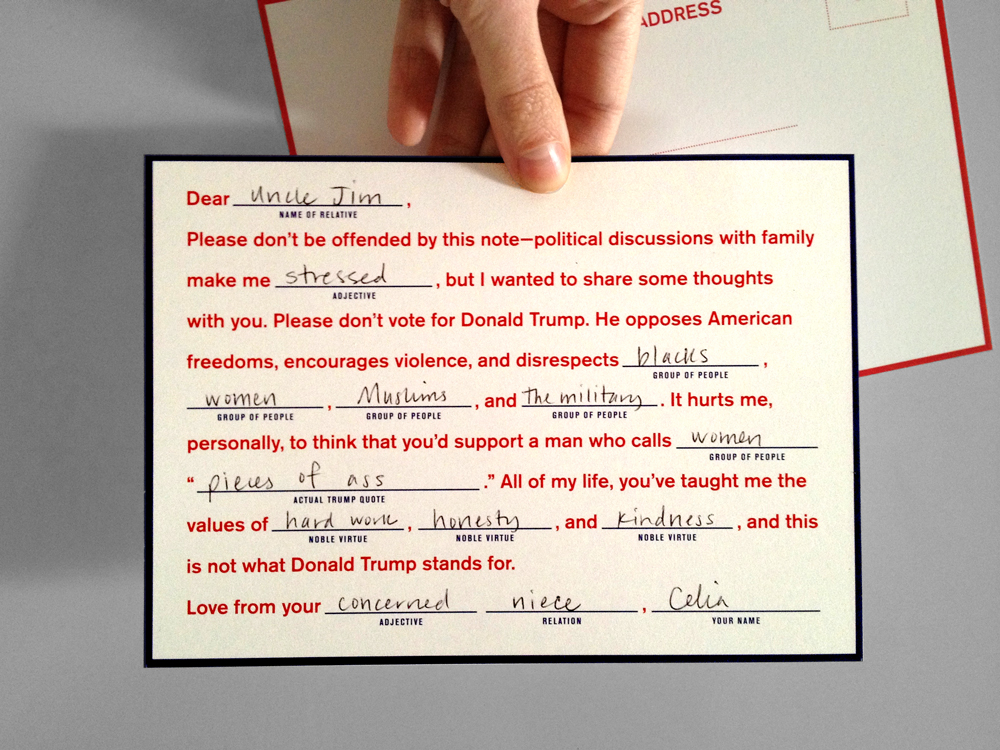 ADDRESS
Dear Uncle Jim,
NAME OF RELATIVE
Please don't be offended by this note—political discussions with family
make me stressed, but I wanted to share some thoughts
ADJECTIVE
with you. Please don't vote for Donald Trump. He opposes American
freedoms, encourages violence, and disrespects blacks,
GROUP OF PEOPLE
women, Muslims, and the military. It hurts me,
GROUP OF PEOPLE GROUP OF PEOPLE GROUP OF PEOPLE
personally, to think that you'd support a man who calls women
GROUP OF PEOPLE
"pieces of ass." All of my life, you've taught me the
ACTUAL TRUMP QUOTE
values of hard work, honesty, and kindness, and this
NOBLE VIRTUE NOBLE VIRTUE NOBLE VIRTUE
is not what Donald Trump stands for.
Love from your concerned niece, Celia
ADJECTIVE RELATION YOUR NAME